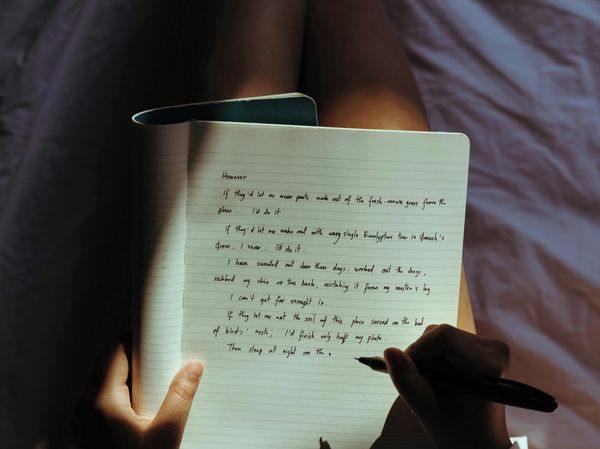 However
If they'd let me wear pants made out of the fresh- grass from the
place. I'd do it.
If they'd let me make out with every single Eucalyptus tree in Ganesh's
Grove, I swear. I'd do it.
I have sweated out dew these days. worked out the dregs,
rubbed my chin on tree bark, mistaking it from my master's leg
I can't get far enought
If they let me the soil of this place served on the bed
of birds' nests; I'd finish only half my plate.
Then sleep all night on the